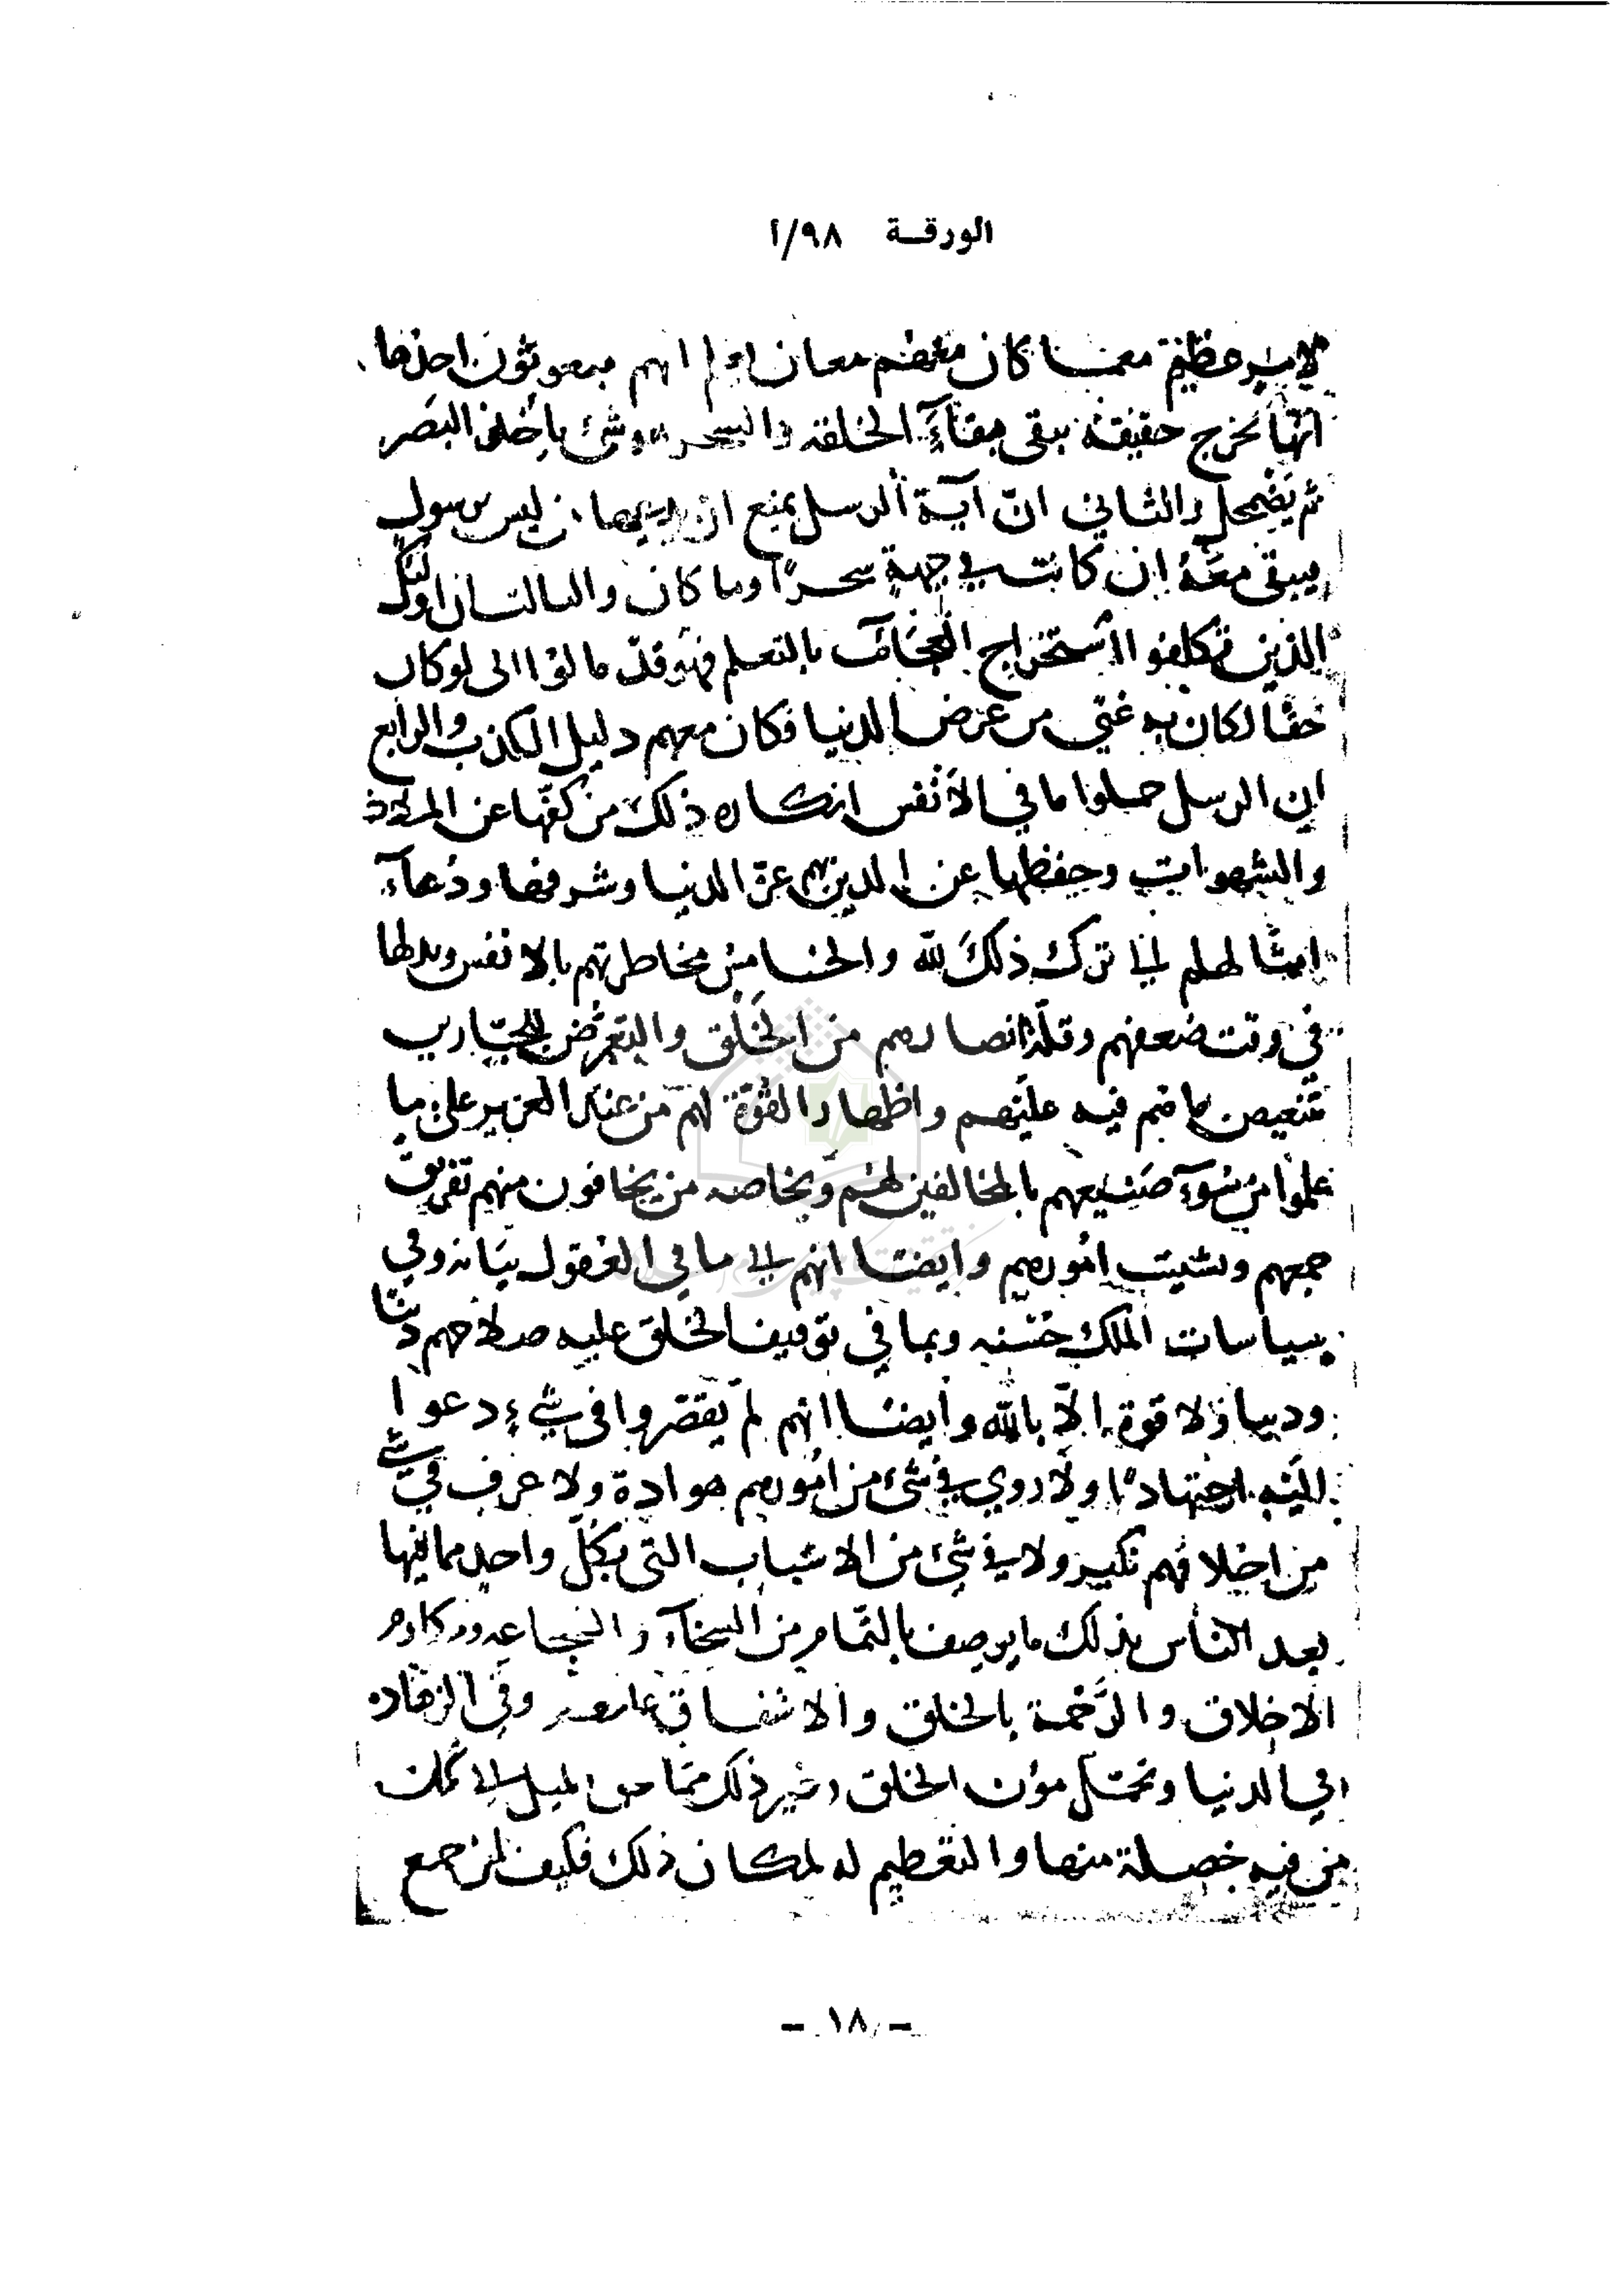 الورقة ٩٨/أ
عظيم كان معهم معان انهم مبعوثون احدها
انها تخرج حقيقة يبقى بقاء الخلقه والسحر باخذ البصر
ثم يضمحل والثاني ان آية الرسل يمنع ان ليس برسول
يبقى معه ان كانت في جهة سحرًا وما كان اولئك
الذين تكلفوا استخراج بالتعلم ما الى لو كان
حقا لكان به غنى من عرض الدنيا فكان معهم دليل الكذب والرابع
ان الرسل حملوا ما في الأنفس انكاره ذلك من كفها عن الملاذ
والشهوات وحفظها عن الدنيا وشرفها ودعاء
امثالهم الى ترك ذلك لله والخامس مخاطرتهم بالانفس وبذلها
في وقت ضعفهم وقلة انصارهم من الخلق والتعرض للجبّارين
بتنغيص ما هم فيه عليهم واظهار القوة لهم من عند العزيز على ما
علموا من سوء صنيعهم بالمخالفين لهم وبخاصه من يخافون منهم تفريق
جمعهم وتشتيت امورهم وايضا انهم الى ما في العقول بيانه وفي
سياسات الملك حسنه وبما في توقيف الخلق عليه صلاحهم دينا
ودنيا ولا قوة إلاّ بالله وأيضا انهم لم يقصروا في شيء دعوا
اليه اجتهادًا ولا روي في شيء من امورهم هوادة ولا عرف في شيء
من اخلاقهم نكير ولا في شيء من الاسباب التي بكل واحد مما فيها
بعد الناس بذلك ما يوصف بالتمام من السخاء والشجاعه ومكارم
الاخلاق والرَّحمة بالخلق والاشفاق عليهم وفي الزهاده
في الدنيا وتحمّل مؤن الخلق وغير ذلك ممّا حق الميل الى
من فيه خصلة منها والتعظيم له لمكان ذلك فكيف لمن جمع
- ١٨ -